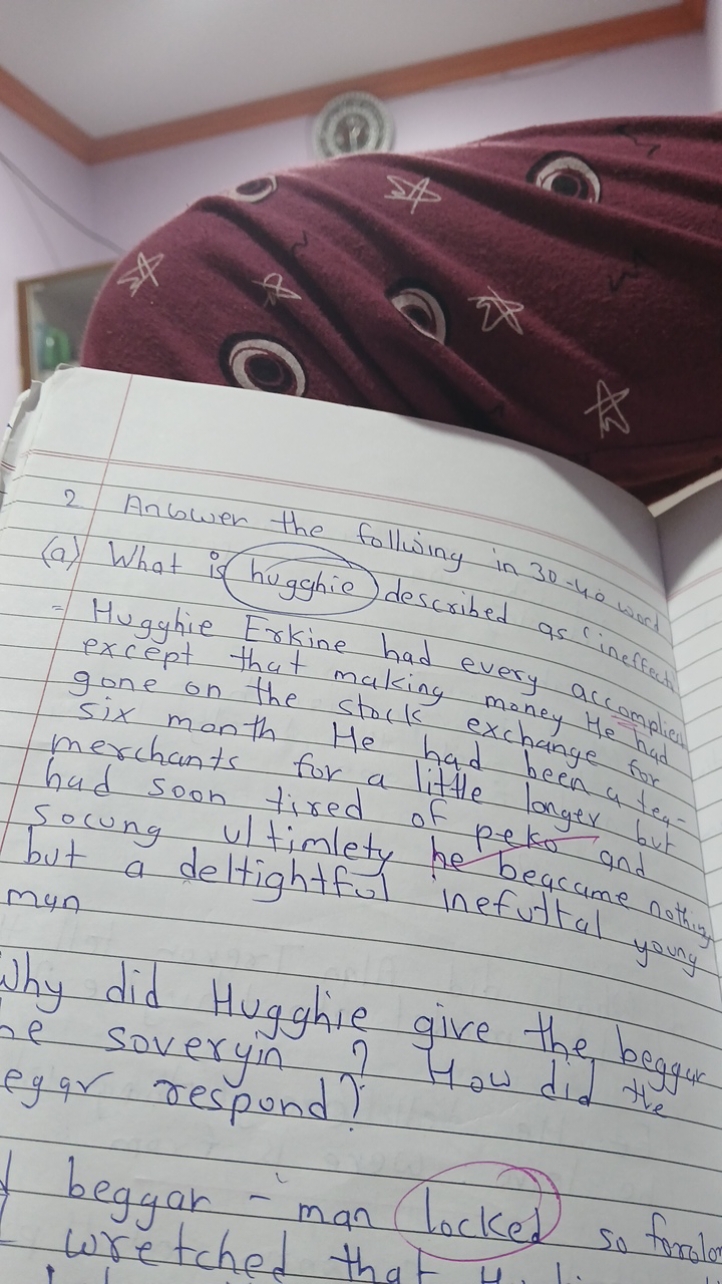 2 Answer the follwing in 30-40 word
(a) What is hugghie described as (ineffecti
= Hugghie Erkine had every accomplies
except that making money He had
gone on the stock exchange for
six month He had been a tea-
merchants for a little longer but
had soon tired of peko and
socung ultimlety he beqcame nothing
but a deltightful inefuttal young
mqn
Why did Hugghie give the beggar
he soveryin ? How did the
egar respond?
beggar - man locked so forolor
wretched that